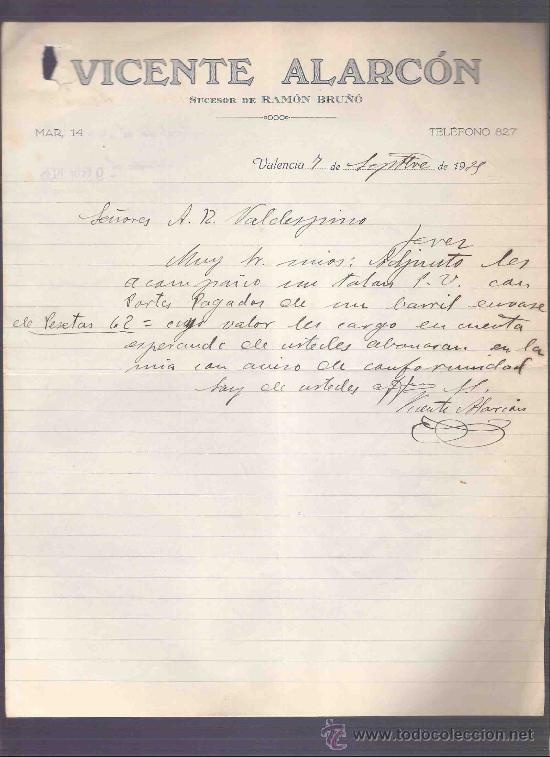 VICENTE ALARCÓN
SUCESOR DE RAMÓN BRUÑÓ
MAR, 14
TELÉFONO 827
Valencia 7 de Septbre de 1925
Señores A. R. Valdespino
Jerez
Muy Sr. mios: Adjunto les
acompaño un talon P. V. con
Portes Pagados de un barril envase
de Pesetas 62 = cuyo valor les cargo en cuenta
esperando de ustedes abonaran en la
mia con aviso de conformidad
Soy de ustedes
Vicente Alarcón
todocoleccion
www.todocoleccion.net